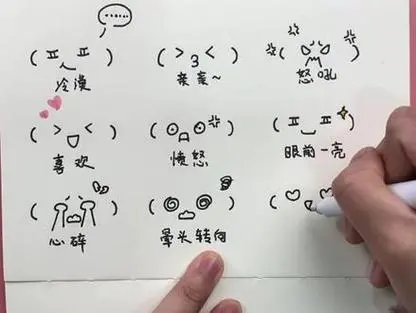 冷漠 亲亲~ 怒吼
喜欢 愤怒 眼前一亮
心碎 晕头转向